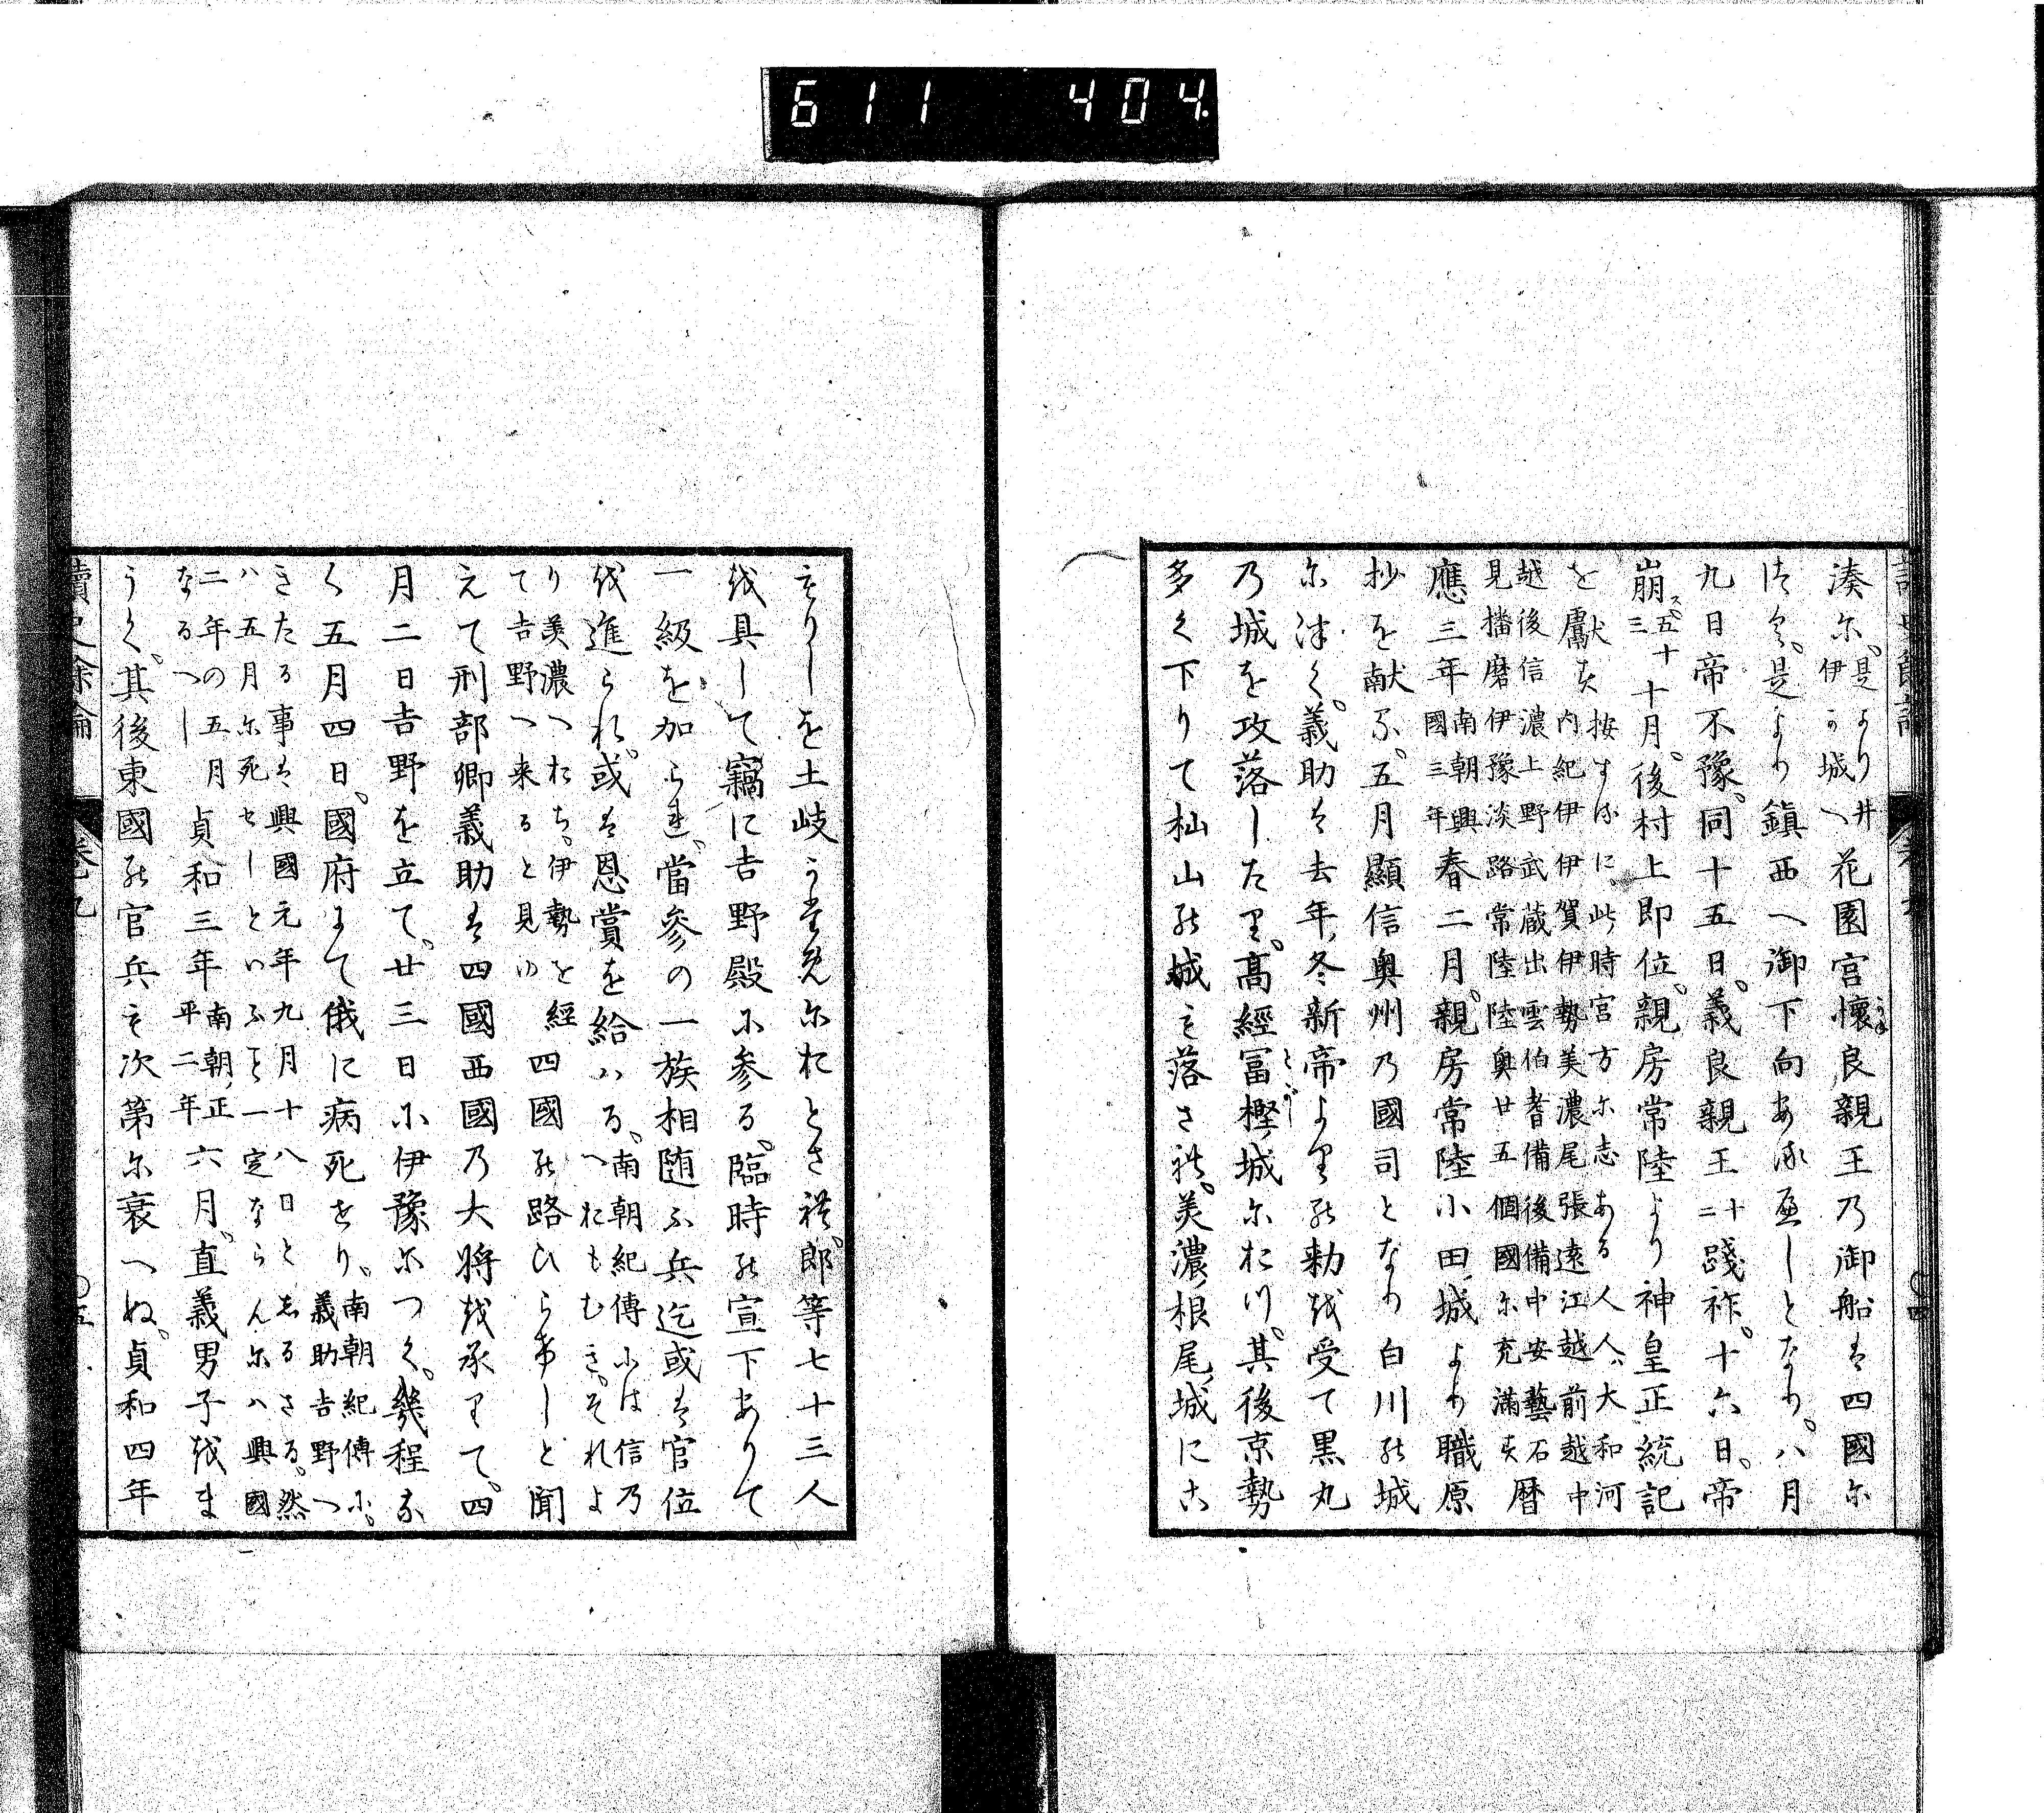 611 404
湊尓、是より井伊の城へ花園宮懐良親王乃御船は四國尓
つく、是より鎮西へ御下向ありしとなり。八月
九日帝不豫、同十五日、義良親王十二踐祚、十六日、帝
崩五十三十月、後村上即位、親房常陸より神皇正統記
を獻ず按ずるに此時宮方尓志ある人人、大和河内紀伊伊賀伊勢美濃尾張遠江越前越中
越後信濃上野武蔵出雲伯耆備後備中安藝石見播磨伊豫淡路常陸陸奥廿五個國尓充滿す暦
應三年南朝興國三年春二月、親房常陸小田城より職原
抄を献ず、五月顯信奥州乃國司となり白川の城
尓津く、義助は去年冬新帝より能勅を受て黒丸
乃城を攻落したり、高經冨樫城尓おつ、其後京勢
多く下りて杣山能城も落され、美濃根尾城にこ
もりしを土岐頼遠尓おとされ、郎等七十三人
を具して竊に吉野殿に参る、臨時能宣下ありて
一級を加られ、當参の一族相随ふ兵迄或は官位
を進られ、或は恩賞を給はる、南朝紀傳には信乃へおもむき、それよ
り美濃へおち、伊勢を經て吉野へ来ると見ゆ四國能路ひらけしと聞
えて刑部卿義助は四國西國乃大将を承りて、四
月二日吉野を立て、廿三日に伊豫尓つく、幾程な
く五月四日、國府にて俄に病死せり、南朝紀傳に、義助吉野へ
きたる事は興國元年九月十八日としるさる、然ハ五月尓死せしといふこと一定ならんにハ興國
二年の五月なるへし貞和三年南朝正平二年六月、直義男子をま
うく、其後東國能官兵も次第尓衰へぬ、貞和四年
讀史餘論 卷九 〇五